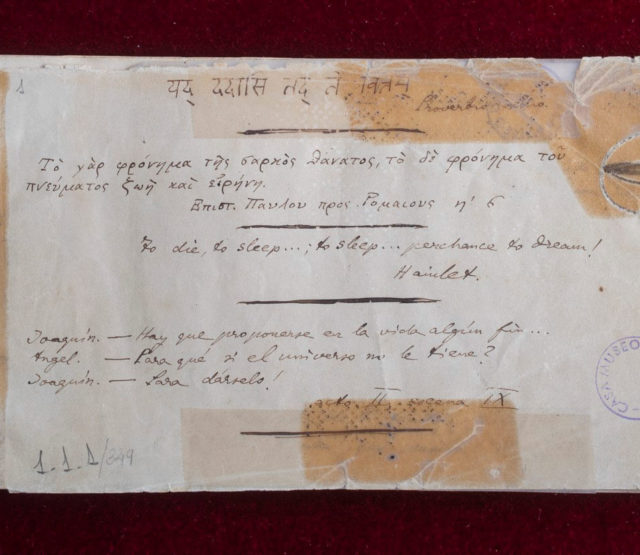 1
यद् ददासि तद् ते
Proverbio
Τὸ γὰρ φρόνημα τῆς σαρκὸς θάνατος, τὸ δὲ φρόνημα τοῦ
πνεύματος ζωὴ καὶ εἰρήνη.
Επιστ. Παυλου προς Ρομαιους η' 6
To die, to sleep...; to sleep... perchance to dream!
Hamlet.
Joaquín. — Hay que proponerse en la vida algún fin...
Ángel. — Para qué si el universo no le tiene?
Joaquín. — Para dárselo!
acto II escena IX
1.1.1/349
CASA MUSEO